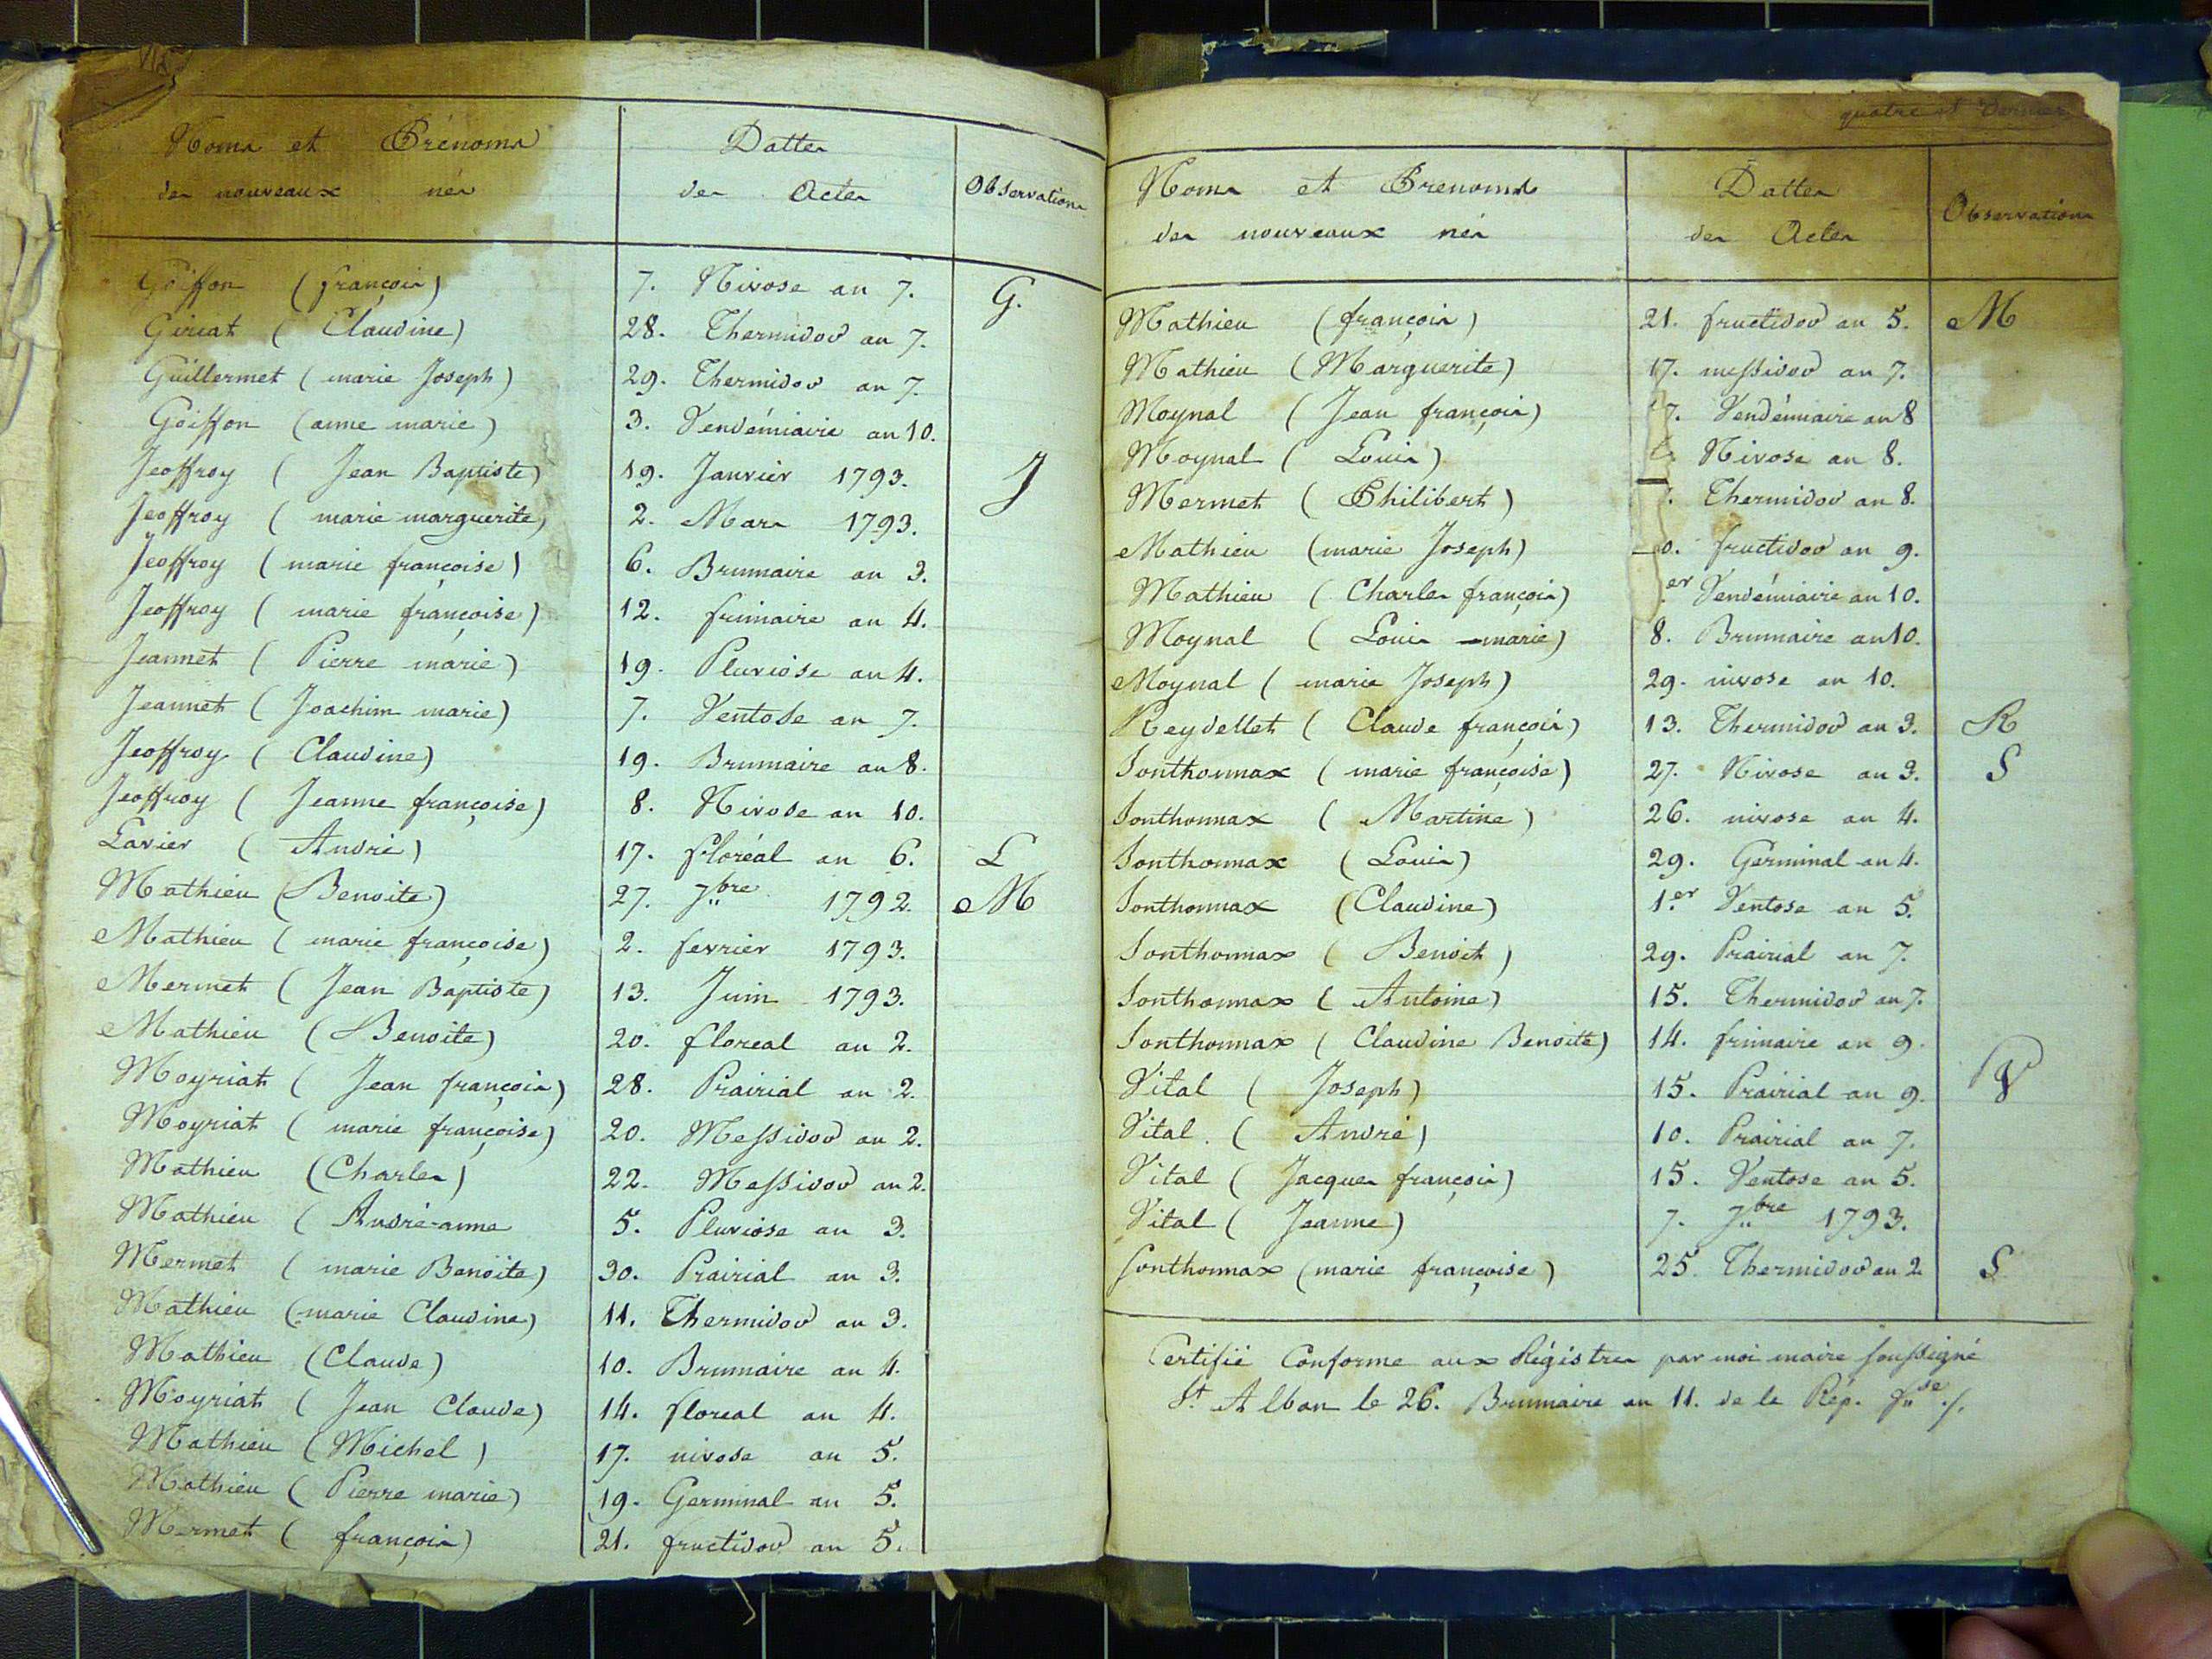 Noms et Prénoms
des nouveaux nés
Dattes
des Actes
Observations
Goiffon (françois) 7. Nivose an 7. G.
Giriat (Claudine) 28. Thermidor an 7.
Guillermet (marie Joseph) 29. Thermidor an 7.
Goiffon (anne marie) 3. Vendémiaire an 10.
Jeoffroy (Jean Baptiste) 19. Janvier 1793. J
Jeoffroy (marie marguerite) 2. Mars 1793.
Jeoffroy (marie françoise) 6. Brumaire an 3.
Jeoffroy (marie françoise) 12. frimaire an 4.
Jeannet (Pierre marie) 19. Pluviose an 4.
Jeannet (Joachim marie) 7. Ventose an 7.
Jeoffroy (Claudine) 19. Brumaire an 8.
Jeoffroy (Jeanne françoise) 8. Nivose an 10.
Lavier (André) 17. floréal an 6. L
Mathieu (Benoite) 27. 7bre 1792. M
Mathieu (marie françoise) 2. fevrier 1793.
Mermet (Jean Baptiste) 13. Juin 1793.
Mathieu (Benoite) 20. floreal an 2.
Moyriat (Jean françois) 28. Prairial an 2.
Moyriat (marie françoise) 20. Messidor an 2.
Mathieu (Charles) 22. Messidor an 2.
Mathieu (André-anne 5. Pluviose an 3.
Mermet (marie Benoite) 30. Prairial an 3.
Mathieu (marie Claudine) 11. Thermidor an 3.
Mathieu (Claude) 10. Brumaire an 4.
Moyriat (Jean Claude) 14. floreal an 4.
Mathieu (Michel) 17. nivose an 5.
Mathieu (Pierre marie) 19. Germinal an 5.
Mermet (françois) 21. fructidor an 5.
quatre et dernier
Noms et Prenoms
des nouveaux nés
Dattes
des Actes
Observations
Mathieu (françois) 21. fructidor an 5. M
Mathieu (Marguerite) 17. messidor an 7.
Moynal (Jean françois) 7. Vendémiaire an 8
Moynal (Louis) Nivose an 8.
Mermet (Philibert) Thermidor an 8.
Mathieu (marie Joseph) 0. fructidor an 9.
Mathieu (Charles françois) er Vendémiaire an 10.
Moynal (Louis marie) 8. Brumaire an 10.
Moynal (marie Joseph) 29. nivose an 10.
Reydellet (Claude françois) 13. Thermidor an 3. R
Sonthonnax (marie françoise) 27. Nivose an 3. S
Sonthonnax (Martine) 26. nivose an 4.
Sonthonnax (Louis) 29. Germinal an 4.
Sonthonnax (Claudine) 1.er Ventose an 5.
Sonthonnax (Benoit) 29. Prairial an 7.
Sonthonnax (Antoine) 15. Thermidor an 7.
Sonthonnax (Claudine Benoite) 14. frimaire an 9.
Vital (Joseph) 15. Prairial an 9. V
Vital (André) 10. Prairial an 7.
Vital (Jacques françois) 15. Ventose an 5.
Vital (Jeanne) 7. 7bre 1793.
Sonthonnax (marie françoise) 25. Thermidor an 2 S
Certifié Conforme aux Régistres par moi maire soussigné
St. Alban le 26. Brumaire an 11. de la Rép. fse ./.